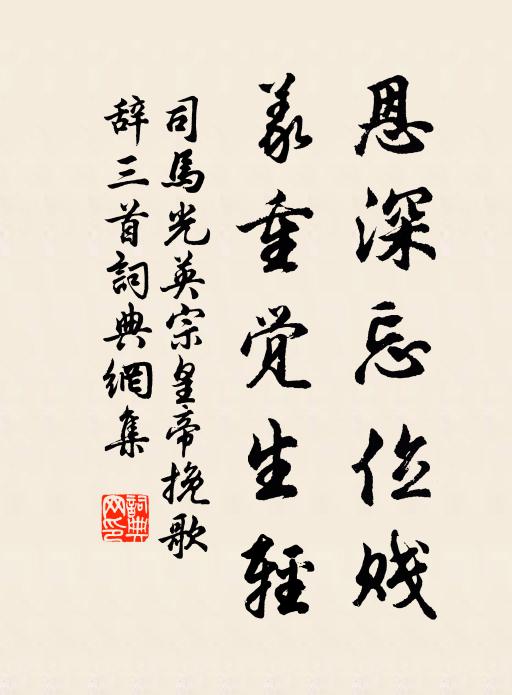 恩深忘位贱
义重觉生輕
司馬光英宗皇帝挽歌
辞三首詞典網集
詞典网印